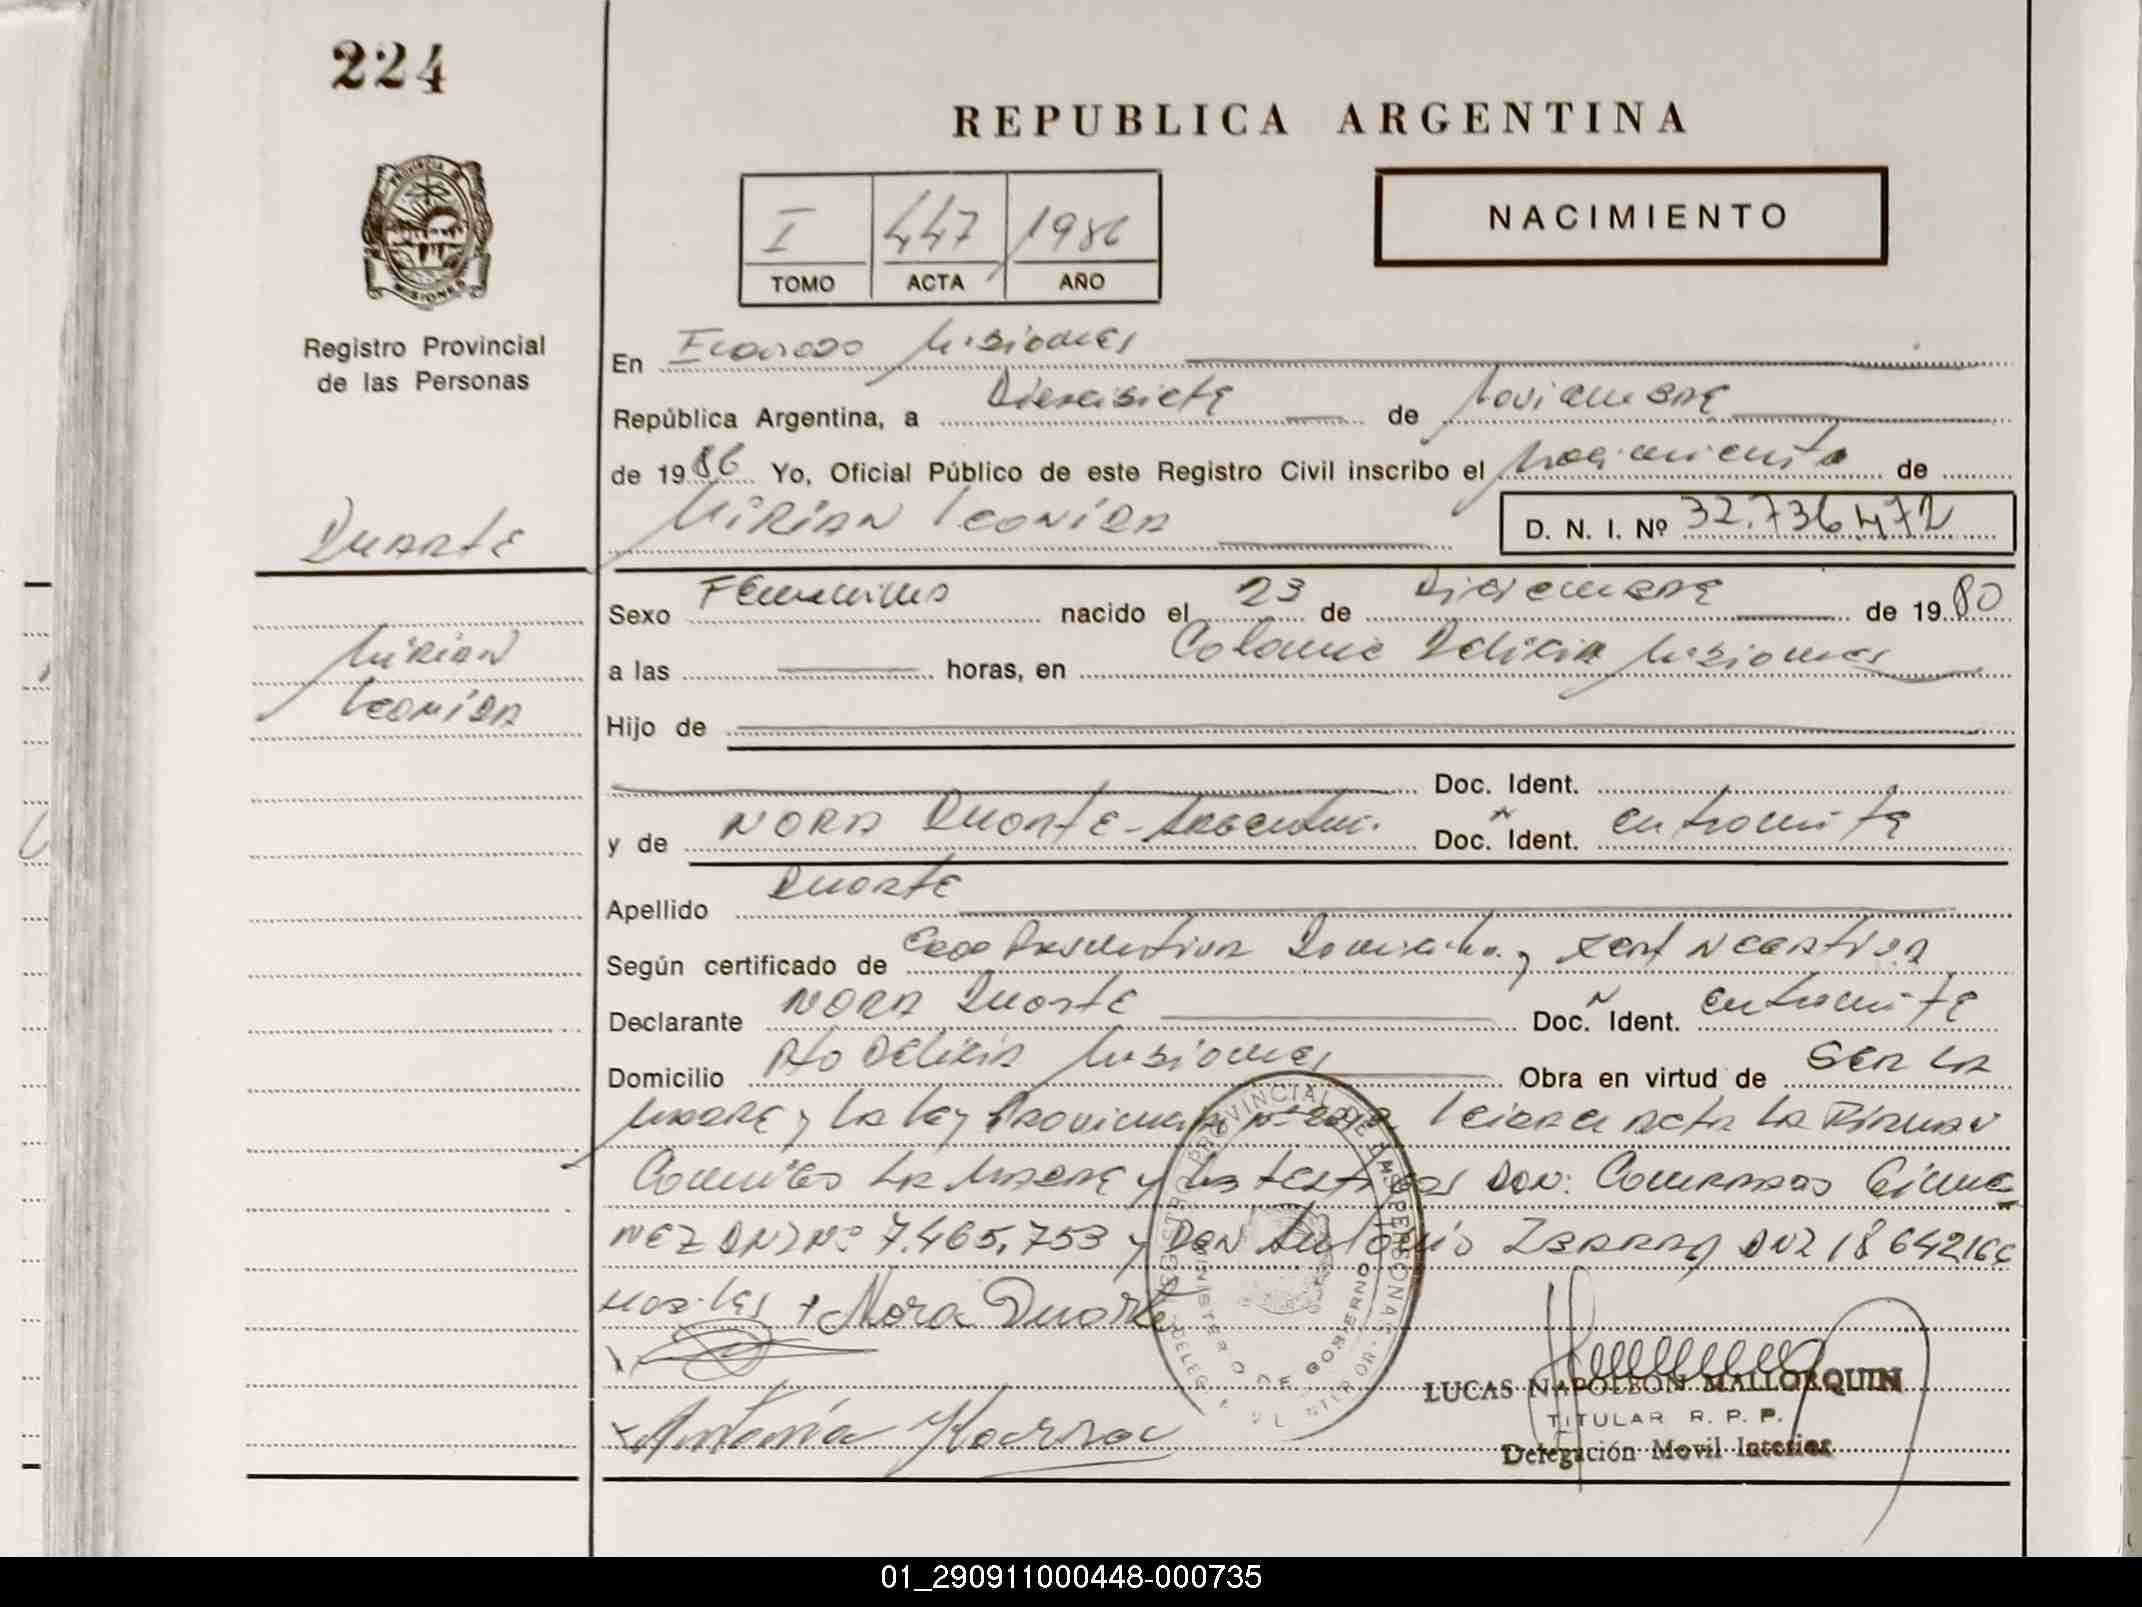 224
REPUBLICA ARGENTINA
NACIMIENTO
I 447 1986
TOMO ACTA AÑO
PROVINCIA DE
MISIONES
Registro Provincial
de las Personas
En Eldorado Misiones
República Argentina, a Diecisiete de Noviembre
de 1986 Yo, Oficial Público de este Registro Civil inscribo el Nacimiento de
Duarte
Mirian Leonida
D. N. I. Nº 32.736.472
Mirian
Leonida
Sexo Femenino nacido el 23 de Diciembre de 1980
a las horas, en Colonia Delicia Misiones
Hijo de
Doc. Ident.
y de Nora Duarte - Argentina. Doc. Ident. en tramite
Apellido Duarte
Según certificado de y cert Negativa
Declarante Nora Duarte Doc. Ident. en tramite
Domicilio Pto Delicia Misiones Obra en virtud de ser la
madre y la ley Provincial Nº Leida el acta la firman
Conmigo la madre y los testigos Don:
nez DNI Nº 7.465.753 y Don DNI 18642166
+ Nora Duarte
REGISTRO PROVINCIAL DE LAS PERSONAS
MINISTERIO DE GOBIERNO
LUCAS NAPOLEON MALLORQUIN
TITULAR R. P. P.
Delegación Movil Interior
01_290911000448-000735